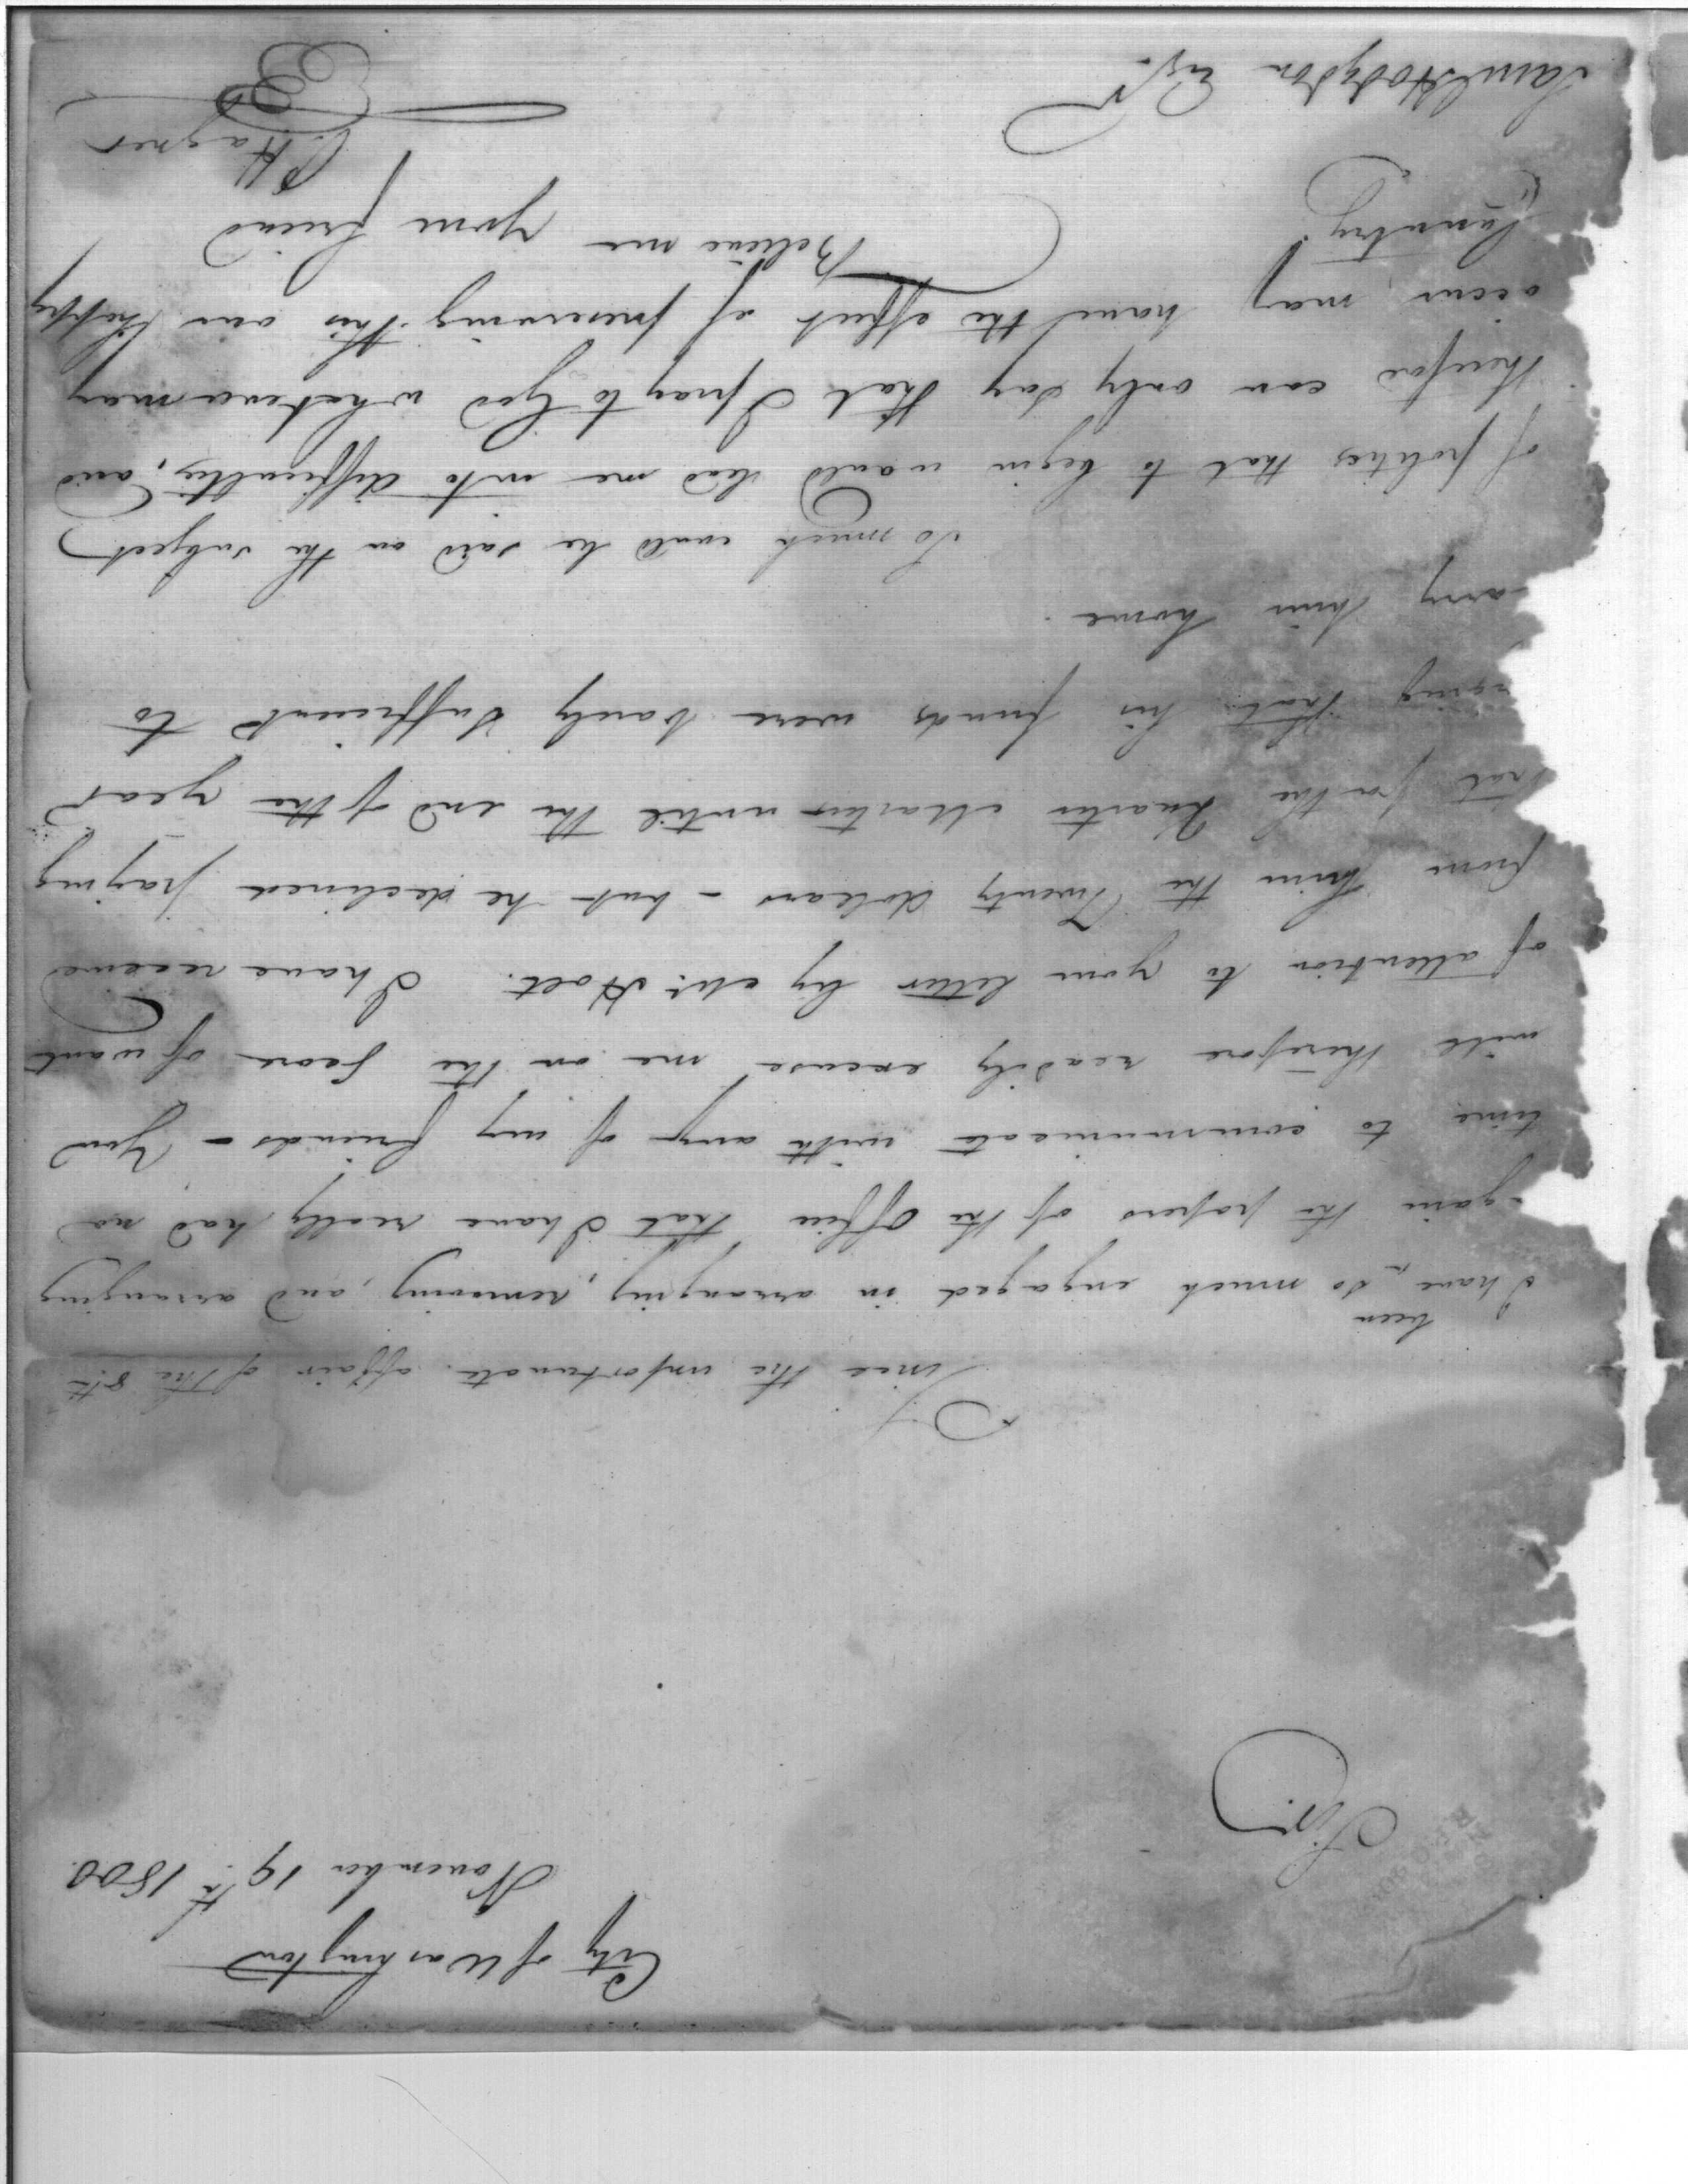 City of Washington
November 19th 1800.
Sir
Since the unfortunate affair of the 8th
been
I have so much engaged in arranging, removing, and arranging
again the papers of the Office that I have really had no
time to communicate with any of my friends – You
will therefore readily excuse me on the score of want
of attention to your letter by Mr. Holt. I have received
from him the Twenty dollars – but he declined paying
that for the Quarter Master until the end of the year
that his funds were barely sufficient to
carry him home.
So much could be said on the subject
of politics that to begin would lead me into difficulties, and
therefore can only say that I pray to God whatever may
occur, may have the effect of preserving this our happy
Country.
Believe me your friend
P. Hagner
Saml Hodgdon Esqr.